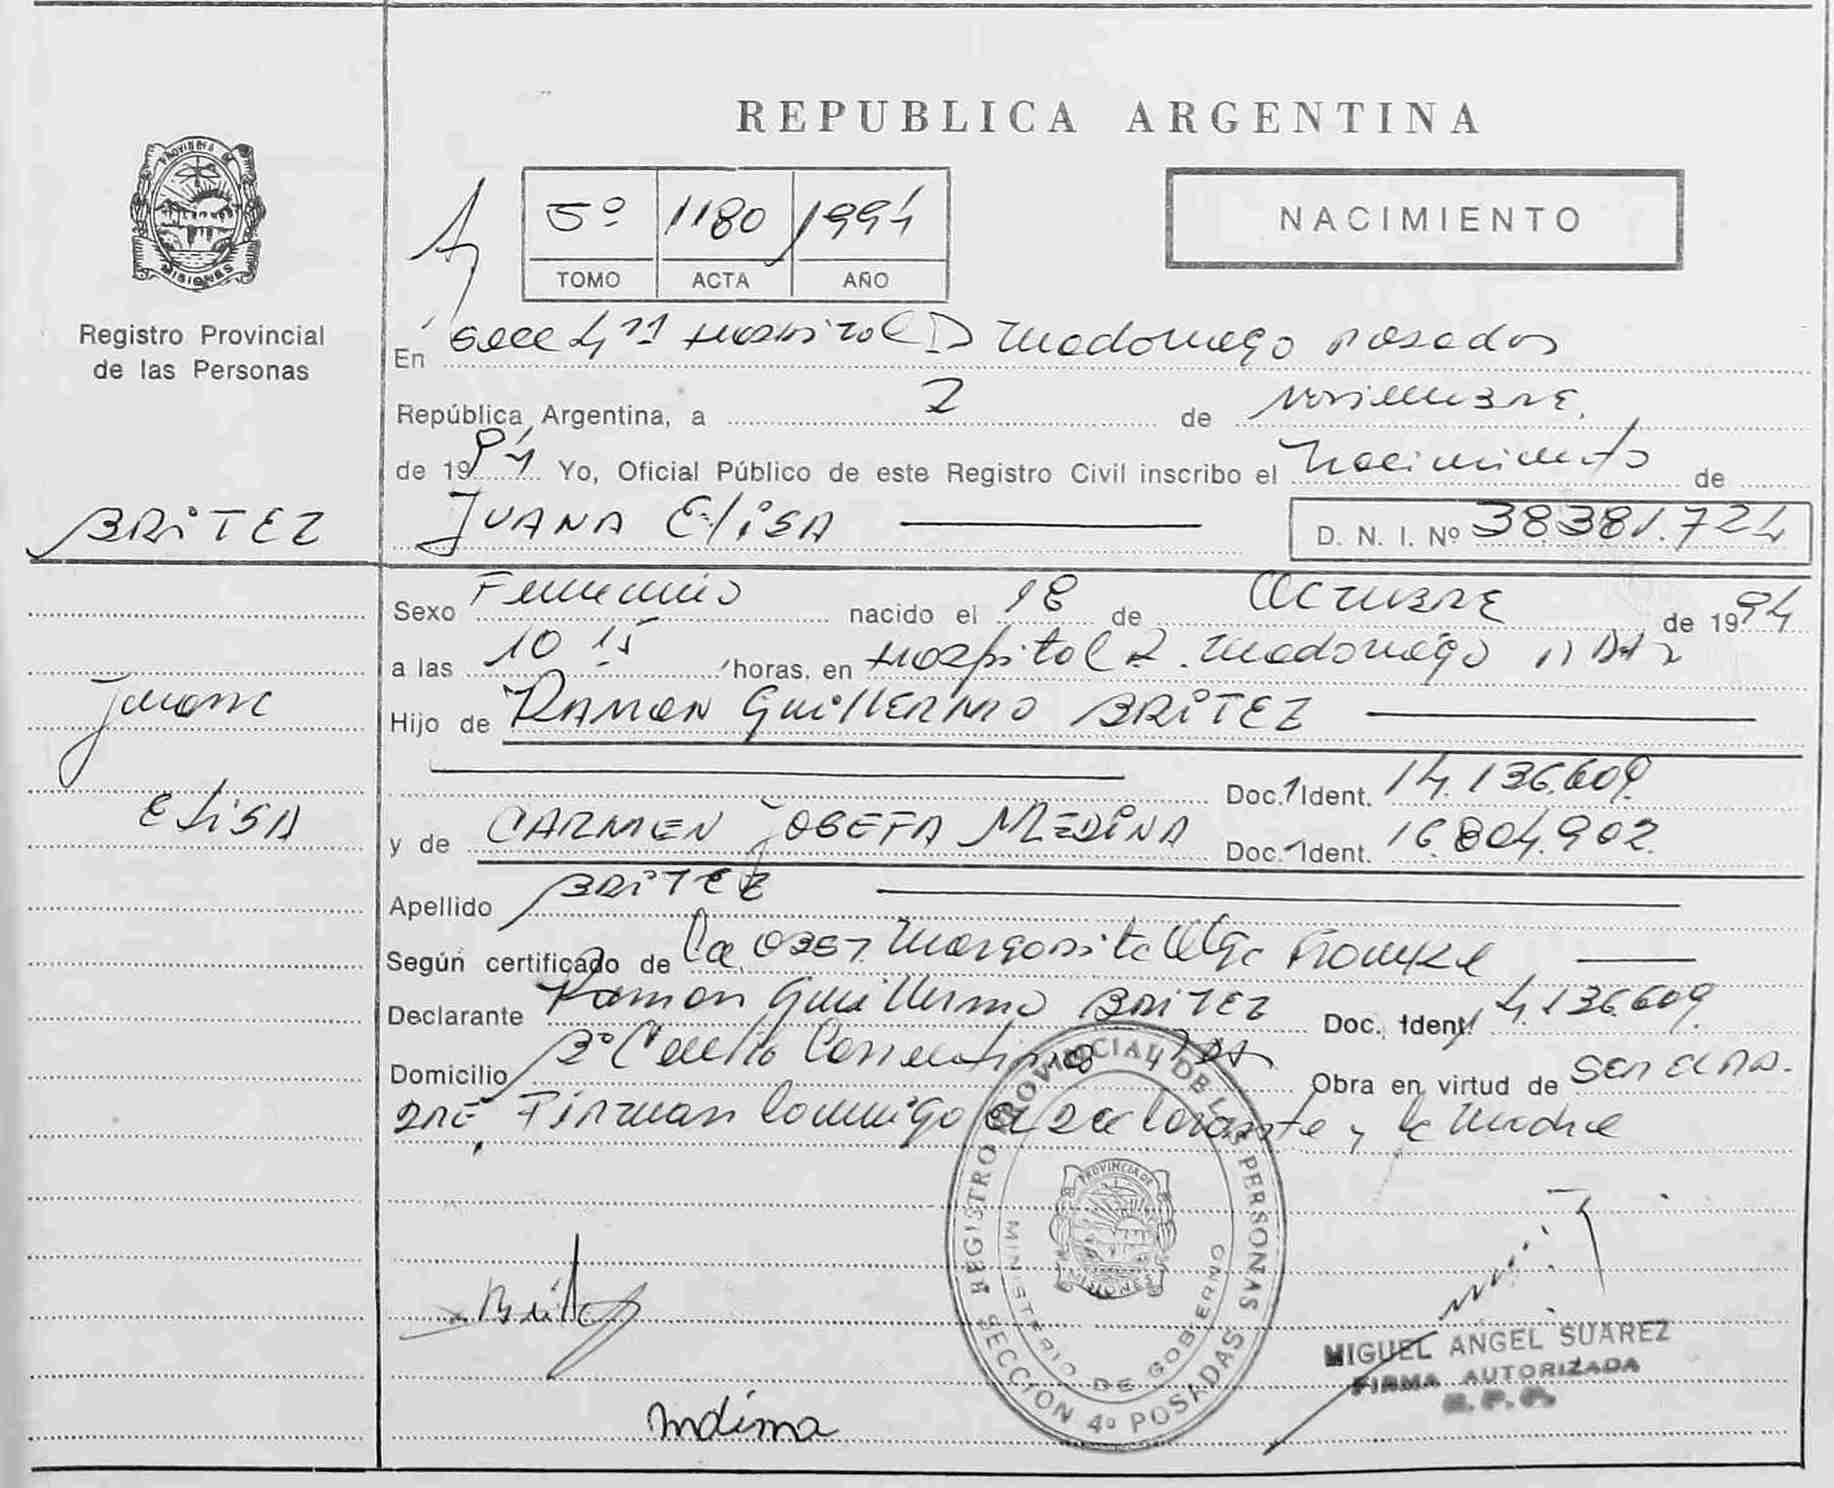 REPUBLICA ARGENTINA
5º 1180 1994
TOMO ACTA AÑO
NACIMIENTO
PROVINCIA DE
MISIONES
Registro Provincial
de las Personas
En Hospital Madariaga Posadas
República Argentina, a 2 de noviembre
de 1994 Yo, Oficial Público de este Registro Civil inscribo el Nacimiento de
BRITEZ
JUANA ElisA
D. N. I. Nº 38.381.724
Sexo Femenino nacido el 18 de Octubre de 1994
a las 10 15 horas, en Hospital R. Madariaga
Juana
Hijo de RAMON GuillERMO BRITEZ
Doc. Ident. 14.136.609
ElisA
y de CARMEN JOSEFA MEDINA Doc. Ident. 16.804.902
Apellido BRITEZ
Según certificado de la Obst Margarita Olga
Declarante Ramon Guillermo BRITEZ Doc. Ident. 14.136.609
Domicilio Obra en virtud de ser el pa-
dre, Firman conmigo el declarante y la madre
REGISTRO PROVINCIAL DE LAS PERSONAS
SECCION 4º POSADAS
MINISTERIO DE GOBIERNO
PROVINCIA DE
MISIONES
Britez
MIGUEL ANGEL SUAREZ
FIRMA AUTORIZADA
R. P. P.